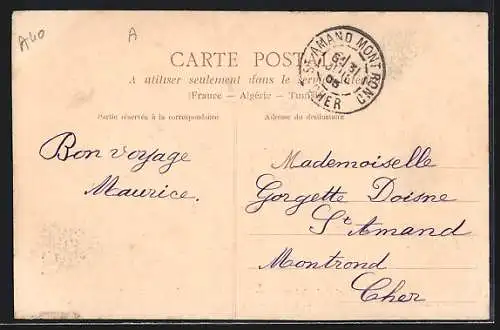 A40
A
CARTE POST
A utiliser seulement dans le
(France — Algérie — Tun
Partie réservée à la correspondance
Adresse du destinataire
ST-AMAND MONT ROND
CHER
Bon voyage
Maurice.
Mademoiselle
Gorgette Doisne
St Amand
Montrond
Cher